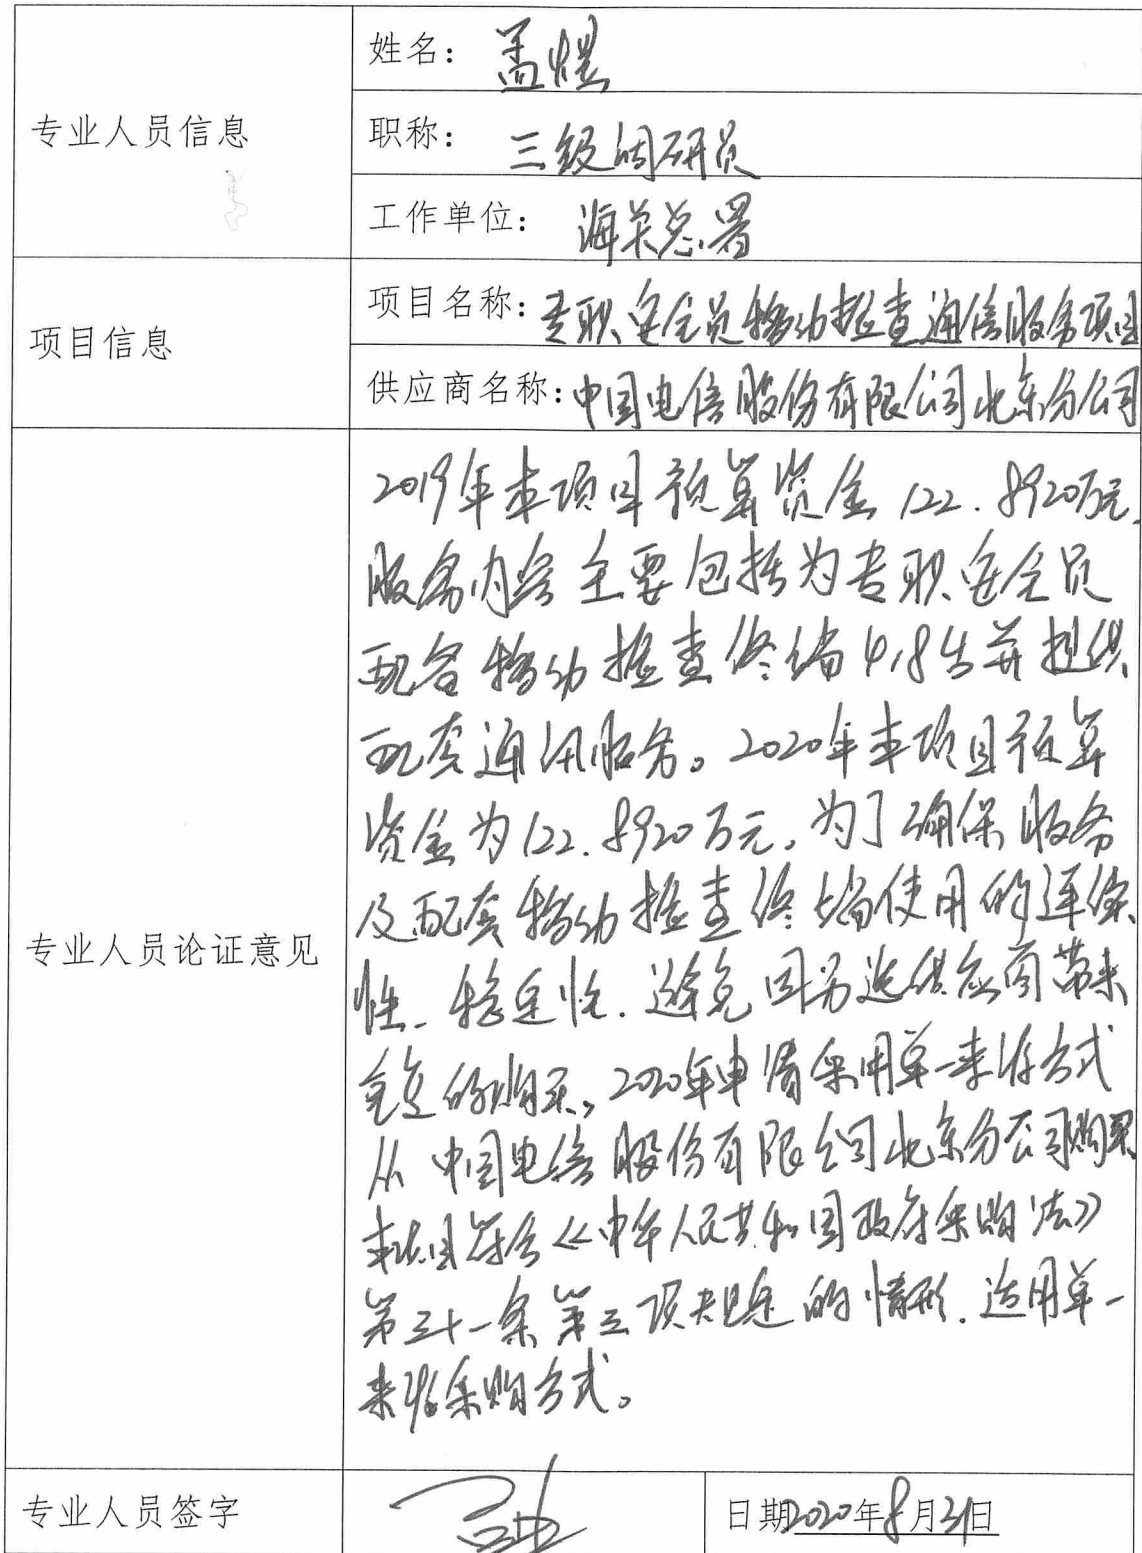 专业人员信息
姓名：孟煜
职称：三级调研员
工作单位：海关总署
项目信息
项目名称：专职安全员移动检查通信服务项目
供应商名称：中国电信股份有限公司北京分公司
专业人员论证意见
2019年本项目预算资金122.8920万元，
服务内容主要包括为专职安全员
配备移动检查终端418台并提供
配套通讯服务。2020年本项目预算
资金为122.8920万元，为了确保服务
及配套移动检查终端使用的连续
性、稳定性，避免因另选供应商带来
的购买，2020年申请采用单一来源方式
从中国电信股份有限公司北京分公司购买
本项目符合《中华人民共和国政府采购法》
第三十一条第三项规定的情形，适用单一
来源采购方式。
专业人员签字
日期2020年8月31日